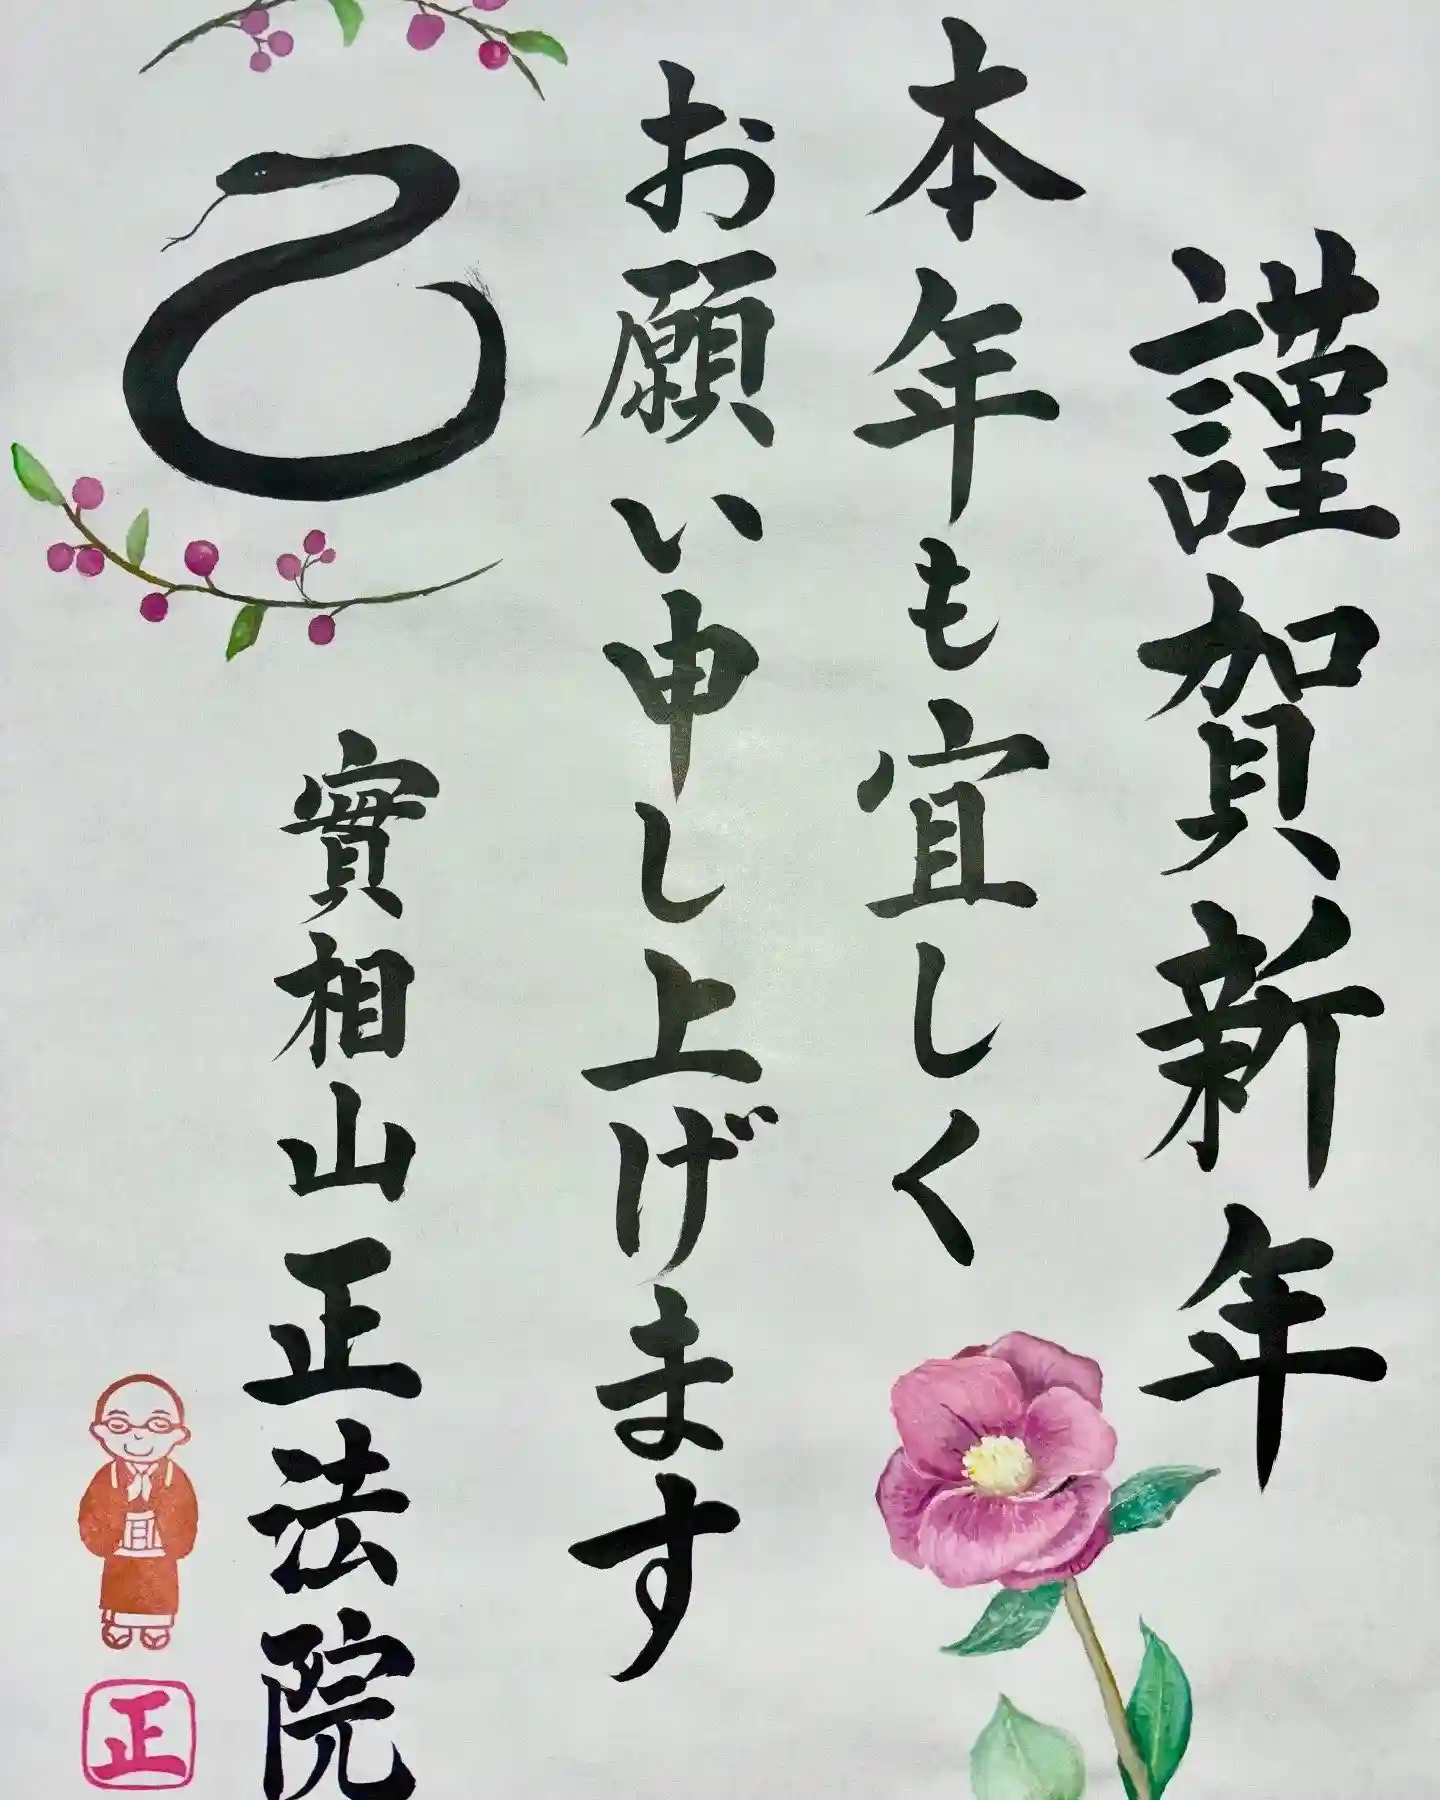 謹賀新年
本年も宜しく
お願い申し上げます
實相山正法院
正